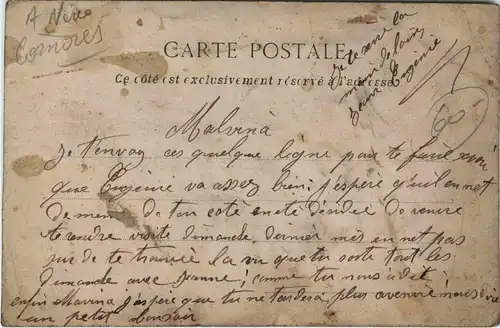 A Néro
Comores
CARTE POSTALE
Ce côté est exclusivement réservé à l'adresse
Je serre la
main de loin
Jeune Eugénie
60
Malvina
Je t'envoy ces quelque ligne pour te faire savoir
que Eugénie va assez bien, j'espère qu'il en est
de meme de ton coté on été décidée de venire
te rendre visite dimanche dernier mes on est pas
sur de te trouvée la vu que tu sorte tout les
Dimanche avec Jeanne, comme tu nous a dit;
enfin Malvina j'espère que tu ne tardera plus a venire nous dire
un petit bonsoir